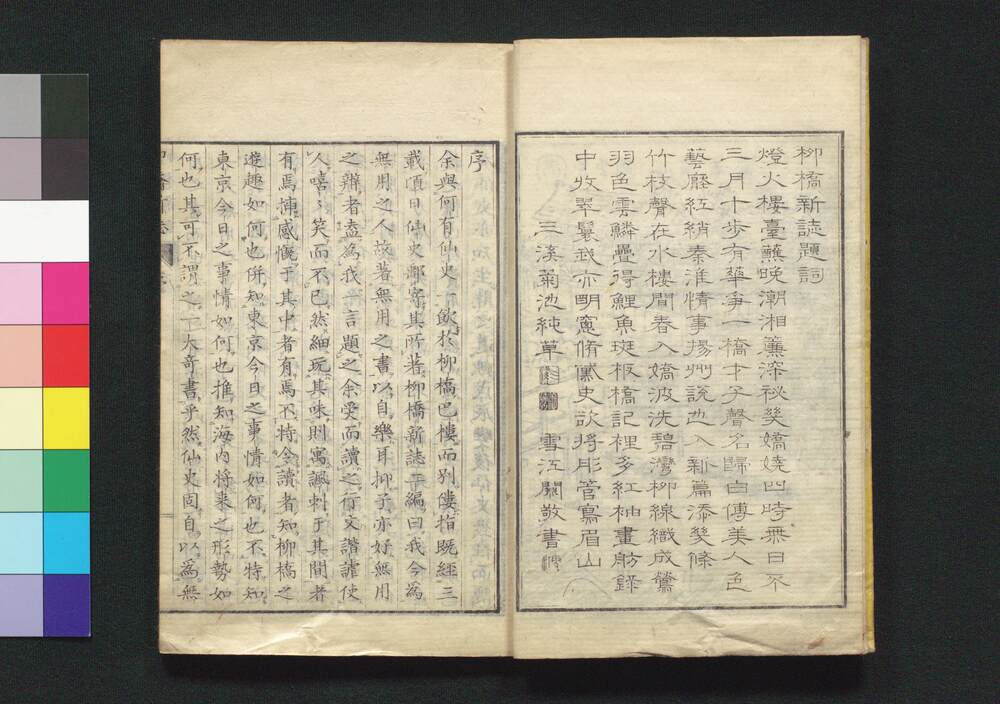 柳橋新誌題詞
燈火樓臺蘸晚潮湘簾深祕幾嬌嬈四時無日不
三月十步有華爭一橋才子聲名歸白傅美人色
藝壓紅綃秦淮情事揚州說也入新篇添幾條
竹枝聲在水樓間春入嬌波洗碧灣柳線織成鶯
羽色雲鱗疊得鯉魚斑板橋記裡多紅袖畫舫錄
中收翠鬟我亦明窻脩儻史欲將彤管寫眉山
三溪菊池純草 雪江關敬書
序
余與何有仙史一飲於柳橋巴樓而別僂指既經三
載頃日仙史郵寄其所著柳橋新誌二編曰我今為
無用之人故著無用之書以自樂耳抑子亦好無用
之辯者盍為我一言題之余受而讀之行文諧謔使
人嘻〻笑而不已然細玩其味則寓諷刺于其間者
有焉揷感慨于其中者有焉不特令讀者知柳橋之
遊趣如何也併知東京今日之事情如何也不特知
東京今日之事情如何也推知海內將来之形勢如
何也其可不謂之一大奇書乎然仙史固自以為無